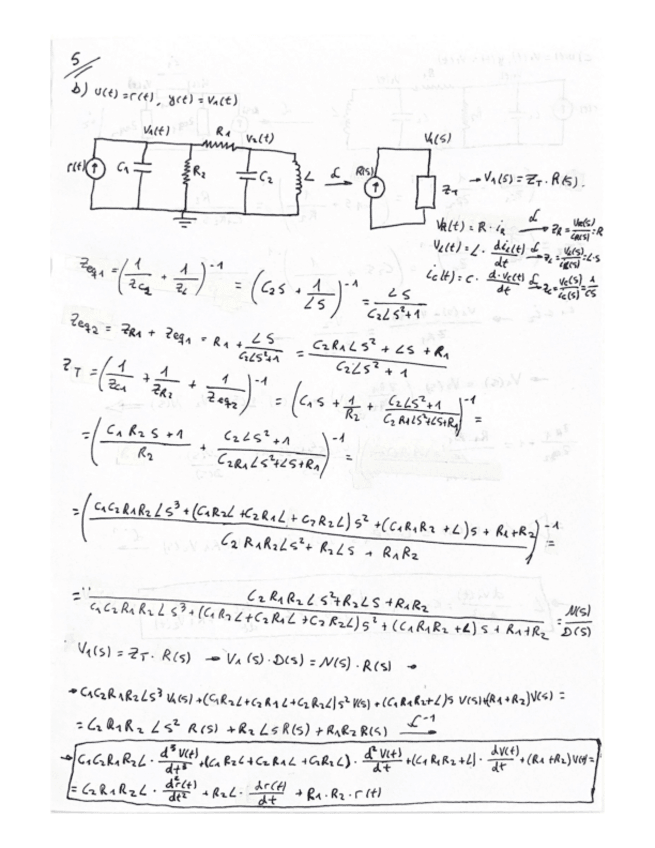 5
b) u(t) = r(t), y(t) = v₁(t)
V₁(t) R₁ V₂(t)
r(t) C₁ R₂ C₂ L
ℒ
R(s) V₁(s) Z_T → V₁(s) = Z_T · R(s).
V_R(t) = R · i_R ℒ→ Z_R = V_R(s)/i_R(s) = R
V_L(t) = L · di_L(t)/dt ℒ→ Z_L = V_L(s)/i_L(s) = L·S
i_C(t) = C · d·V_C(t)/dt ℒ→ Z_C = V_C(s)/i_C(s) = 1/CS
Z_eq1 = (1/Z_C2 + 1/Z_L)^-1 = (C₂S + 1/LS)^-1 = LS/(C₂LS²+1)
Z_eq2 = Z_R1 + Z_eq1 = R₁ + LS/(C₂LS²+1) = (C₂R₁LS² + LS + R₁)/(C₂LS² + 1)
Z_T = (1/Z_C1 + 1/Z_R2 + 1/Z_eq2)^-1 = (C₁S + 1/R₂ + (C₂LS²+1)/(C₂R₁LS²+LS+R₁))^-1 =
= ((C₁R₂S + 1)/R₂ + (C₂LS²+1)/(C₂R₁LS²+LS+R₁))^-1 =
= ((C₁C₂R₁R₂LS³ + (C₁R₂L + C₂R₁L + C₂R₂L)S² + (C₁R₁R₂ + L)S + R₁+R₂)/(C₂R₁R₂LS² + R₂LS + R₁R₂))^-1 =
= (C₂R₁R₂LS² + R₂LS + R₁R₂)/(C₁C₂R₁R₂LS³ + (C₁R₂L + C₂R₁L + C₂R₂L)S² + (C₁R₁R₂ + L)S + R₁+R₂) = N(s)/D(s)
V₁(s) = Z_T · R(s) → V₁(s)·D(s) = N(s)·R(s) →
→ C₁C₂R₁R₂LS³ V₁(s) + (C₁R₂L+C₂R₁L+C₂R₂L)S² V(s) + (C₁R₁R₂+L)S V(s) + (R₁+R₂)V(s) =
= C₂R₁R₂LS² R(s) + R₂LSR(s) + R₁R₂R(s) ℒ^-1→
→ C₁C₂R₁R₂L · d³V(t)/dt³ + (C₁R₂L + C₂R₁L + C₂R₂L) · d²V(t)/dt + (C₁R₁R₂+L) · dV(t)/dt + (R₁+R₂)V(t) =
= C₂R₁R₂L · d²r(t)/dt² + R₂L · dr(t)/dt + R₁·R₂·r(t)